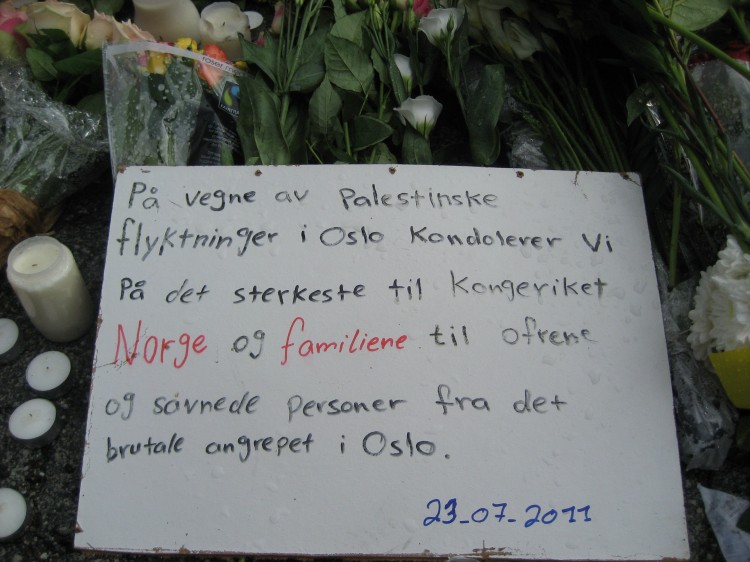 På vegne av Palestinske
flyktninger i Oslo Kondolerer Vi
På det sterkeste til Kongeriket
Norge og familiene til ofrene
og savnede Personer fra det
brutale angrepet i Oslo.
23-07-2011